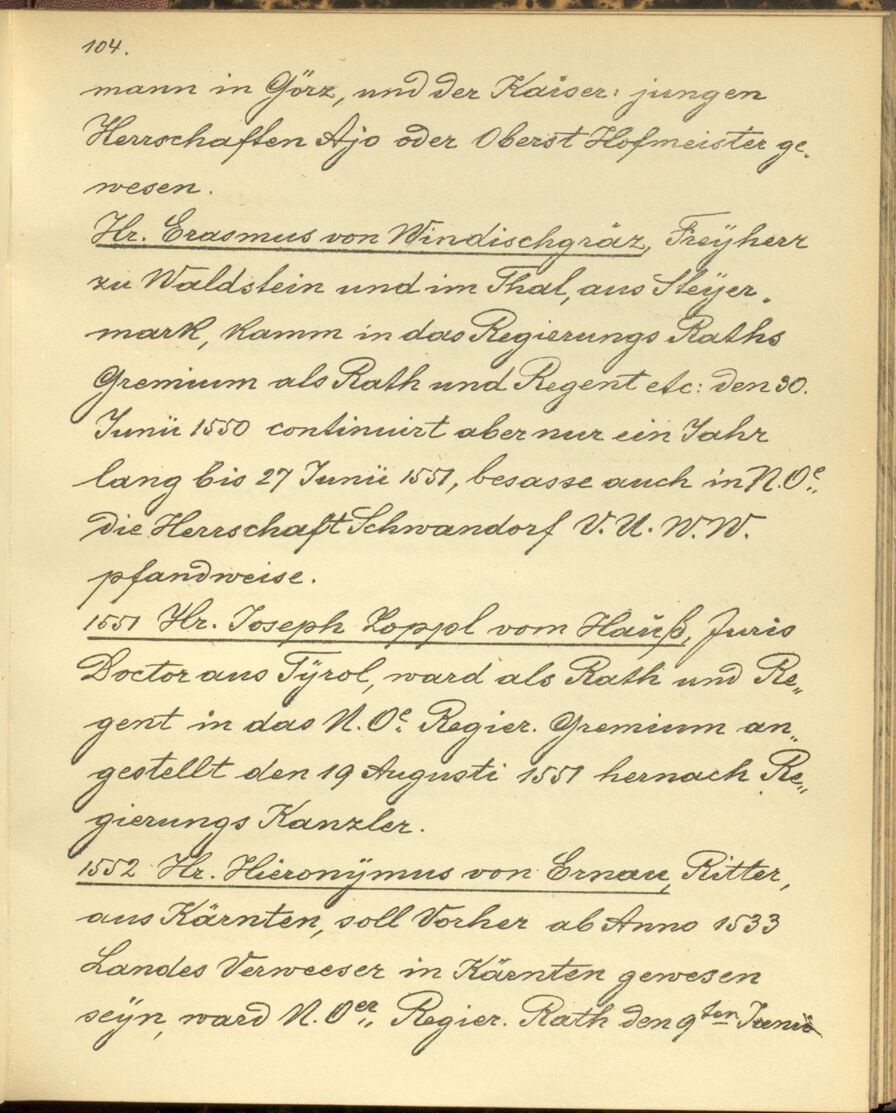 104.
mann in Görz, und der Kaiser: jungen
Herrschaften Ajo oder Oberst Hofmeister ge„
wesen.
Hr. Erasmus von Windischgräz, Freÿherr
zu Waldstein und im Thal, aus Steÿer„
mark, kamm in das Regierungs Raths
Gremium als Rath und Regent etc: den 30.
Junii 1550 continuirt aber nur ein Jahr
lang bis 27 Junii 1551, besasse auch in N.Oe.:
die Herrschaft Schwandorf V. U. W. W.
pfandweise.
1551 Hr. Joseph Zoppl vom Hauß, Juris
Doctor aus Tÿrol, ward als Rath und Re„
gent in das N.Oe.: Regier. Gremium an„
gestellt den 19 Augusti 1551 hernach Re„
gierungs Kanzler.
1552 Hr. Hieronÿmus von Ernau, Ritter,
aus Kärnten, soll Vorher ab Anno 1533
Landes Verweeser in Kärnten gewesen
seÿn, ward N.Oer„ Regier. Rath den 9ten Junii